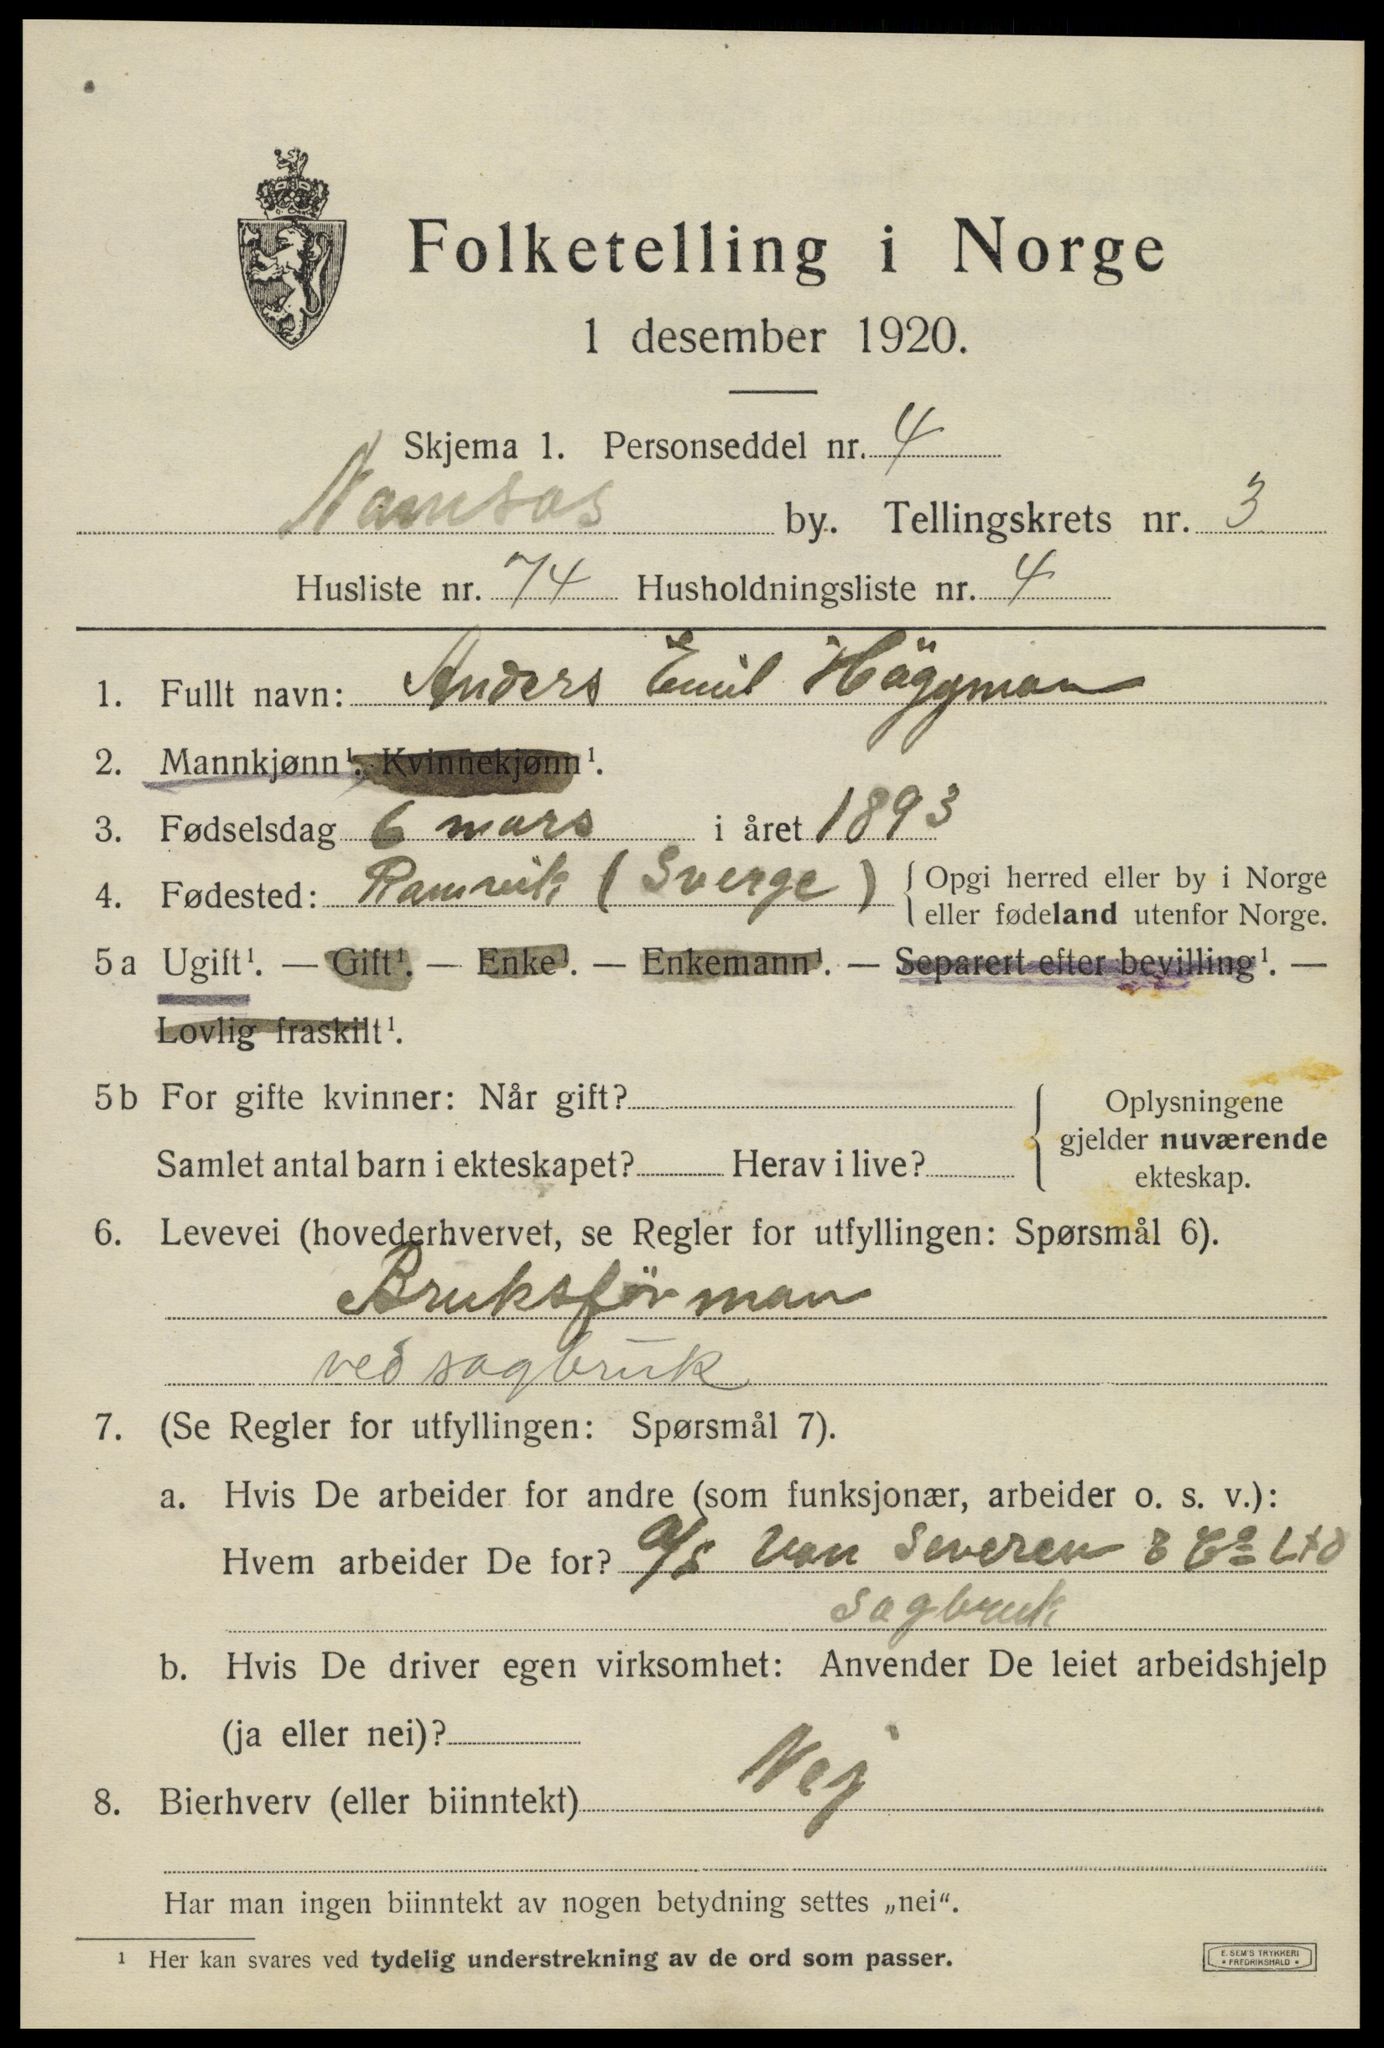 Folketelling i Norge
1 desember 1920.
Skjema 1. Personseddel nr. 4
Namsos by. Tellingskrets nr. 3
Husliste nr. 74 Husholdningsliste nr. 4
1. Fullt navn: Anders Emil Häggman
2. Mannkjønn¹. Kvinnekjønn¹.
3. Fødselsdag 6 mars i året 1893
4. Fødested: Ramvik (Sverge) { Opgi herred eller by i Norge
eller fødeland utenfor Norge.
5 a Ugift¹. — Gift¹. — Enke¹. — Enkemann¹. — Separert efter bevilling¹. —
Lovlig fraskilt¹.
5 b For gifte kvinner: Når gift?
Samlet antal barn i ekteskapet? Herav i live?
{ Oplysningene
gjelder nuværende
ekteskap.
6. Levevei (hovederhvervet, se Regler for utfyllingen: Spørsmål 6).
Bruksförman
ved sagbruk
7. (Se Regler for utfyllingen: Spørsmål 7).
a. Hvis De arbeider for andre (som funksjonær, arbeider o. s. v.):
Hvem arbeider De for? a/s Van Severen & Co Ltd
sagbruk
b. Hvis De driver egen virksomhet: Anvender De leiet arbeidshjelp
(ja eller nei)?
8. Bierhverv (eller biinntekt) Nej
Har man ingen biinntekt av nogen betydning settes „nei“.
¹ Her kan svares ved tydelig understrekning av de ord som passer.
E. SEM'S TRYKKERI
• FREDRIKSHALD •